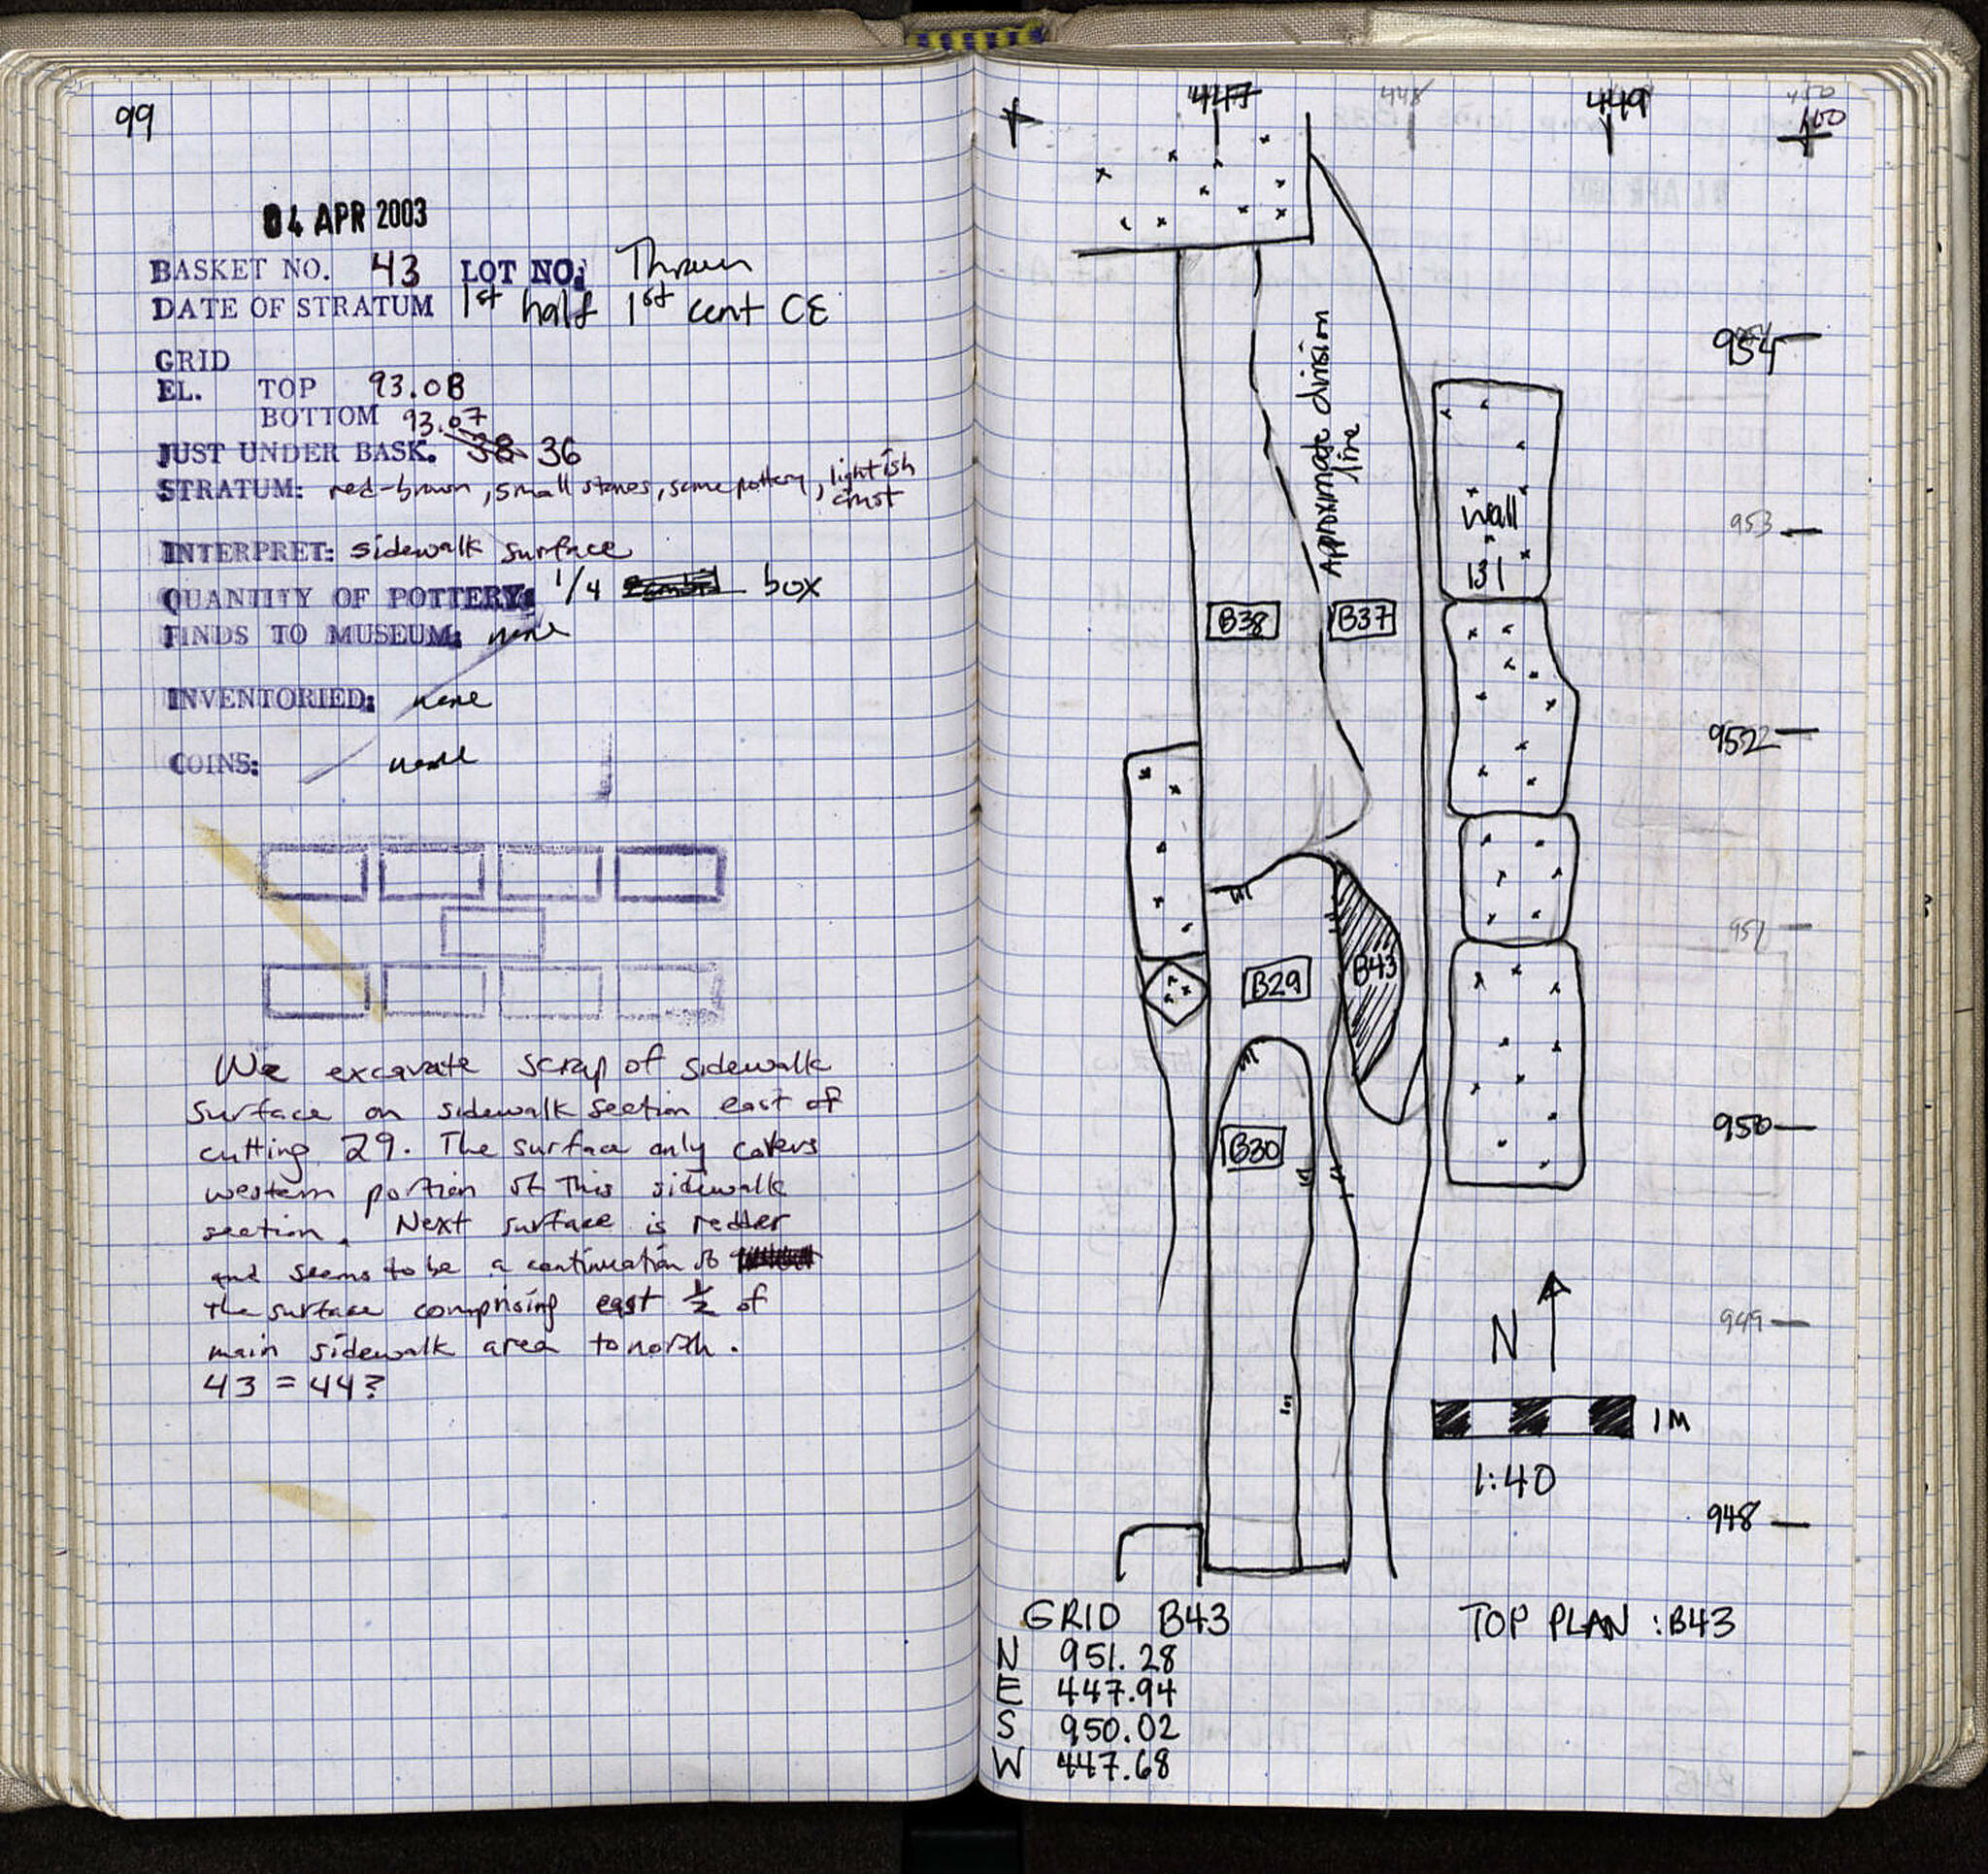 99
04 APR 2003
BASKET NO. 43 LOT NO: Thrown
DATE OF STRATUM 1st half 1st cent CE
GRID
EL. TOP 93.08
BOTTOM 93.07
JUST UNDER BASK. 38 36
STRATUM: red-brown, small stones, some pottery, lightish
crust
INTERPRET: sidewalk surface
QUANTITY OF POTTERY: 1/4 box
FINDS TO MUSEUM: none
INVENTORIED: none
COINS: none
We excavate scrap of sidewalk
surface on sidewalk section east of
cutting 29. The surface only covers
western portion of this sidewalk
section. Next surface is redder
and seems to be a continuation of
the surface comprising east 1/2 of
main sidewalk area to north.
43 = 44?
447
448
449
450
100
954
953
952
951
950
949
948
Approximate division
line
Wall
131
B38
B37
B29
B43
B30
N
1M
1:40
GRID B43
N 951.28
E 447.94
S 950.02
W 447.68
TOP PLAN : B43